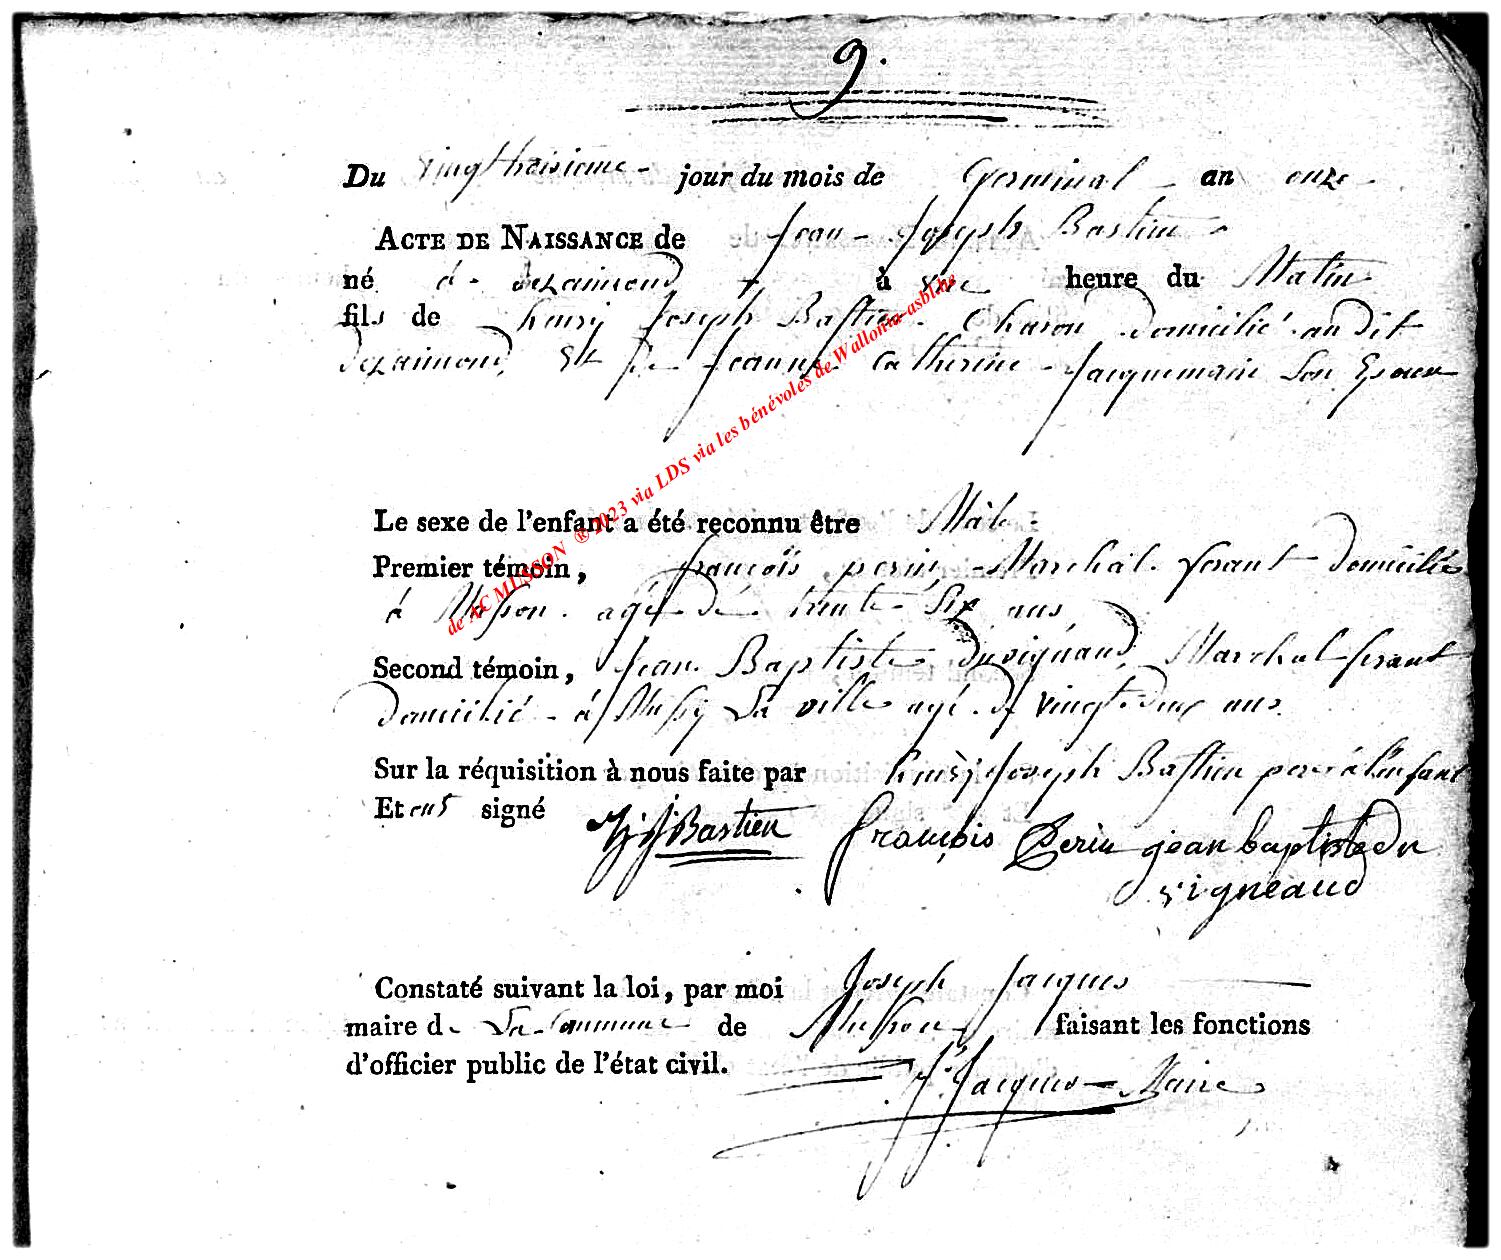 9.
Du vingttroisieme - jour du mois de Germinal - an onze -
ACTE DE NAISSANCE de Jean - Joseph Bastien -
né á - dezaimond à heure du Matin
fils de henry Joseph Bastien - Charon domicilié au dit
dezaimond, Et de Jeanne Catherine - Jacquemain Son Epouse
Le sexe de l'enfant a été reconnu être Mâle -
Premier témoin, françois perin - Marchal - ferant domicilié
á Musson - agé dé trente Six ans
Second témoin, Jean Baptiste duvignaud, Marchal ferant
domicilié - á Mussy La ville agé de vingt-deux ans.
Sur la réquisition à nous faite par henry Joseph Bastien pere á l'enfant
Et ont signé HJBastien françois Perin jean baptiste du
vigneaud
Constaté suivant la loi, par moi Joseph Jacques
maire de La Commune de Musson faisant les fonctions
d'officier public de l'état civil.
J. Jacques - Maire
de AC MUSSON ® 2023 via LDS via les bénévoles de Wallonia-asbl.be